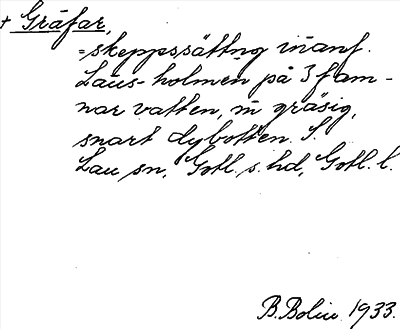 + Gråfar,
= skeppssättng inanf.
Laus-holmen på 3 fam-
nar vatten, m gräsig,
snart dybotten. S.
Lau sn, Gotl. s. hd, Gotl. l.
B. Bolin 1933.